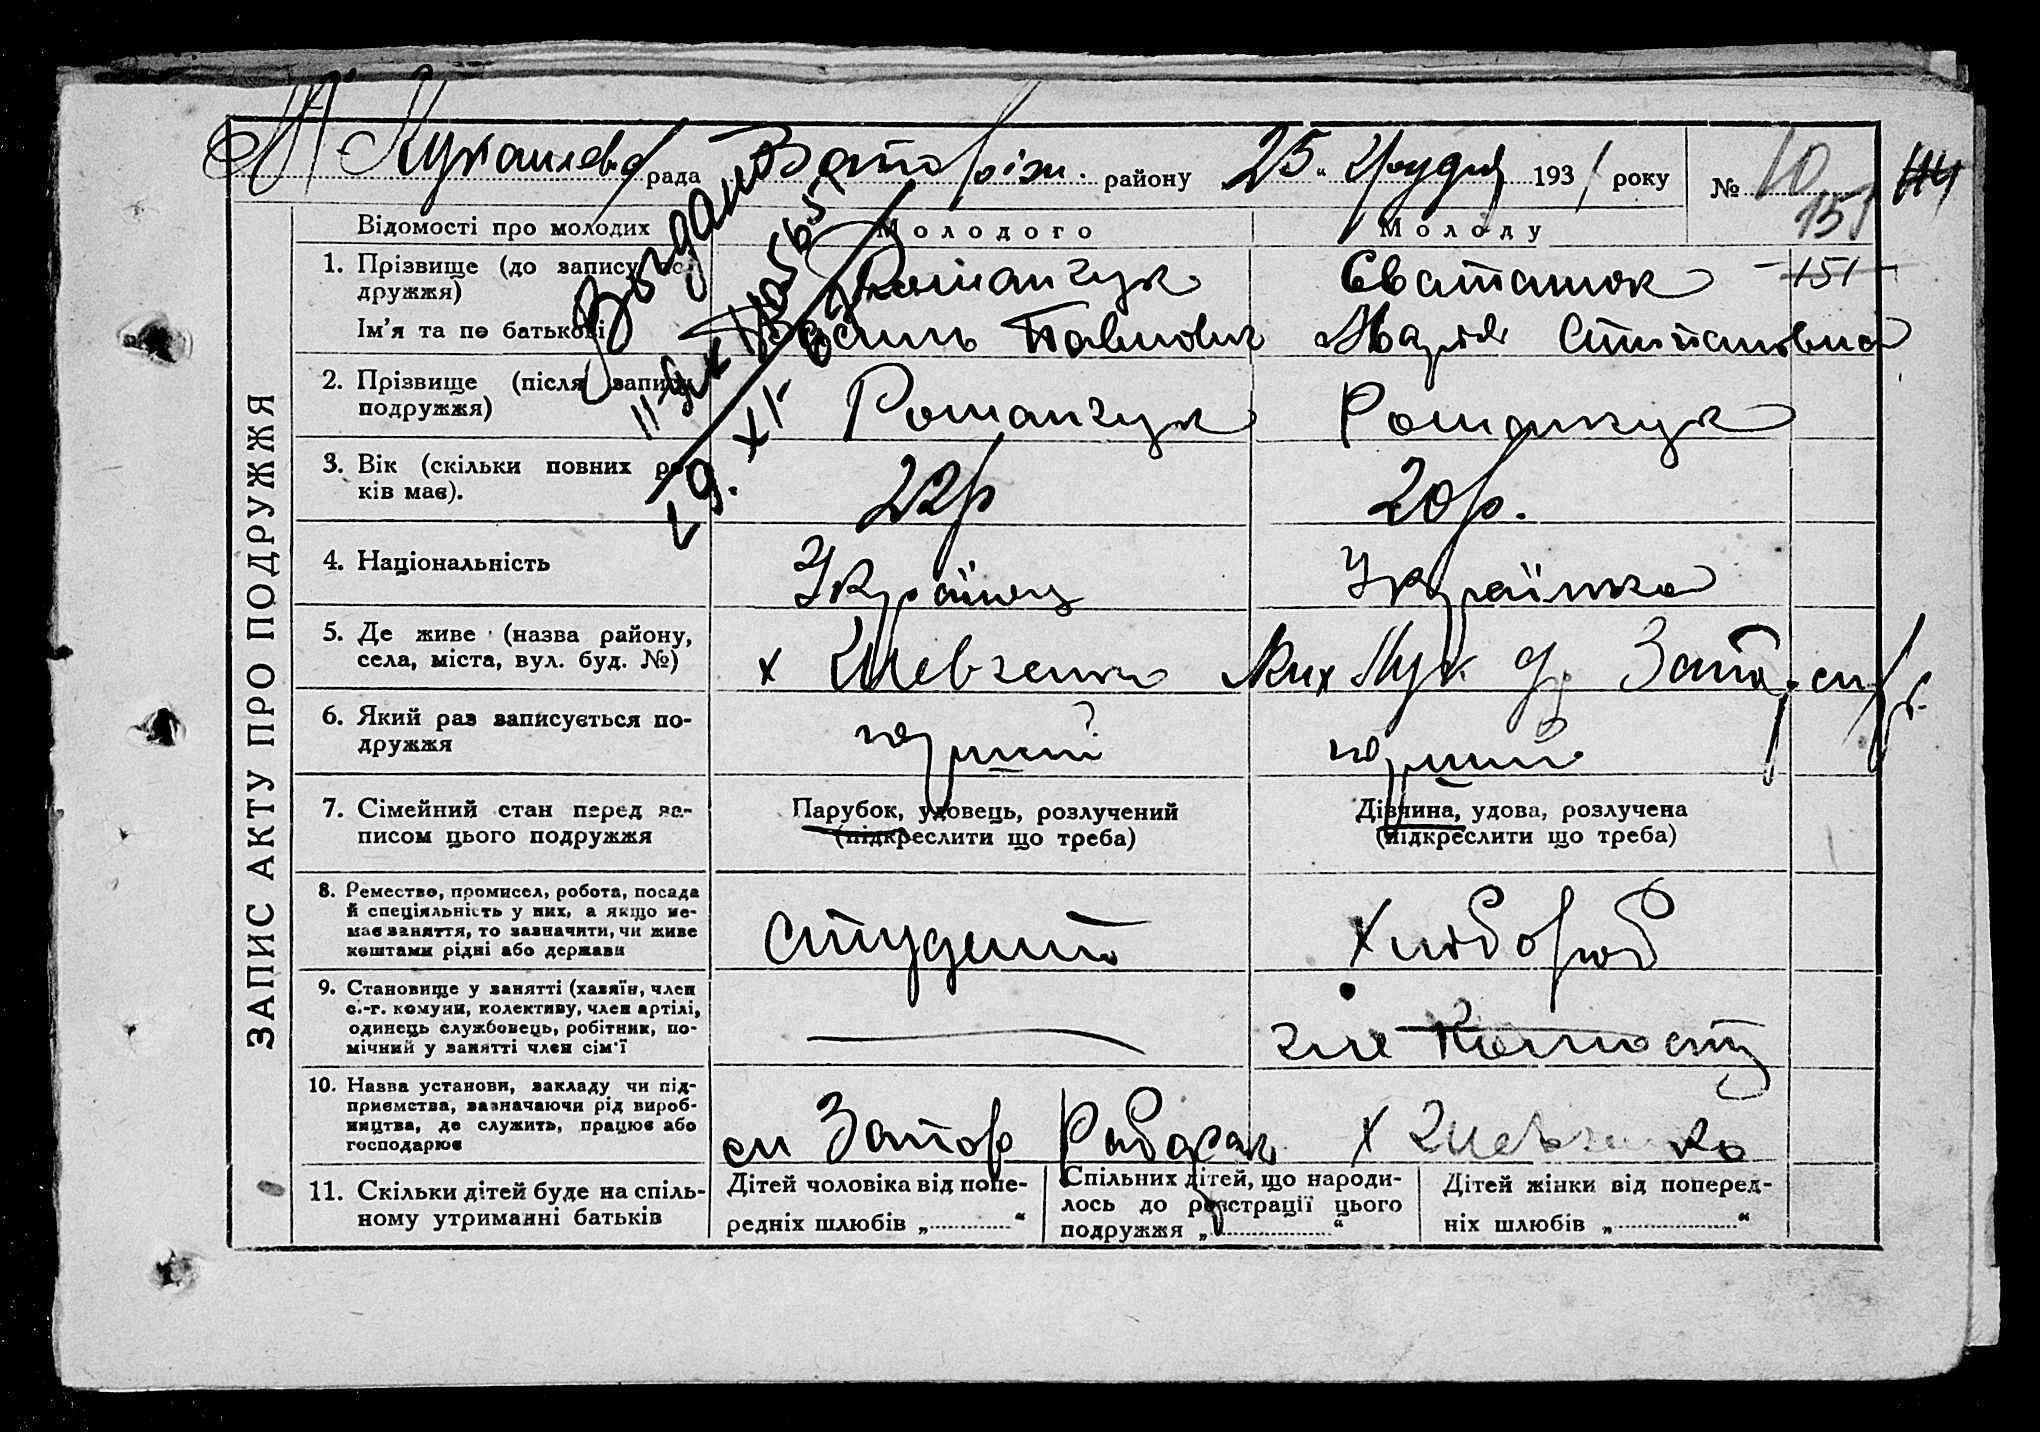 М Кукашева рада Запоріж. району 25 " грудня 1931 року № 10 114
151
Відомості про молодих Молодого Молоду
1. Прізвище (до запису по-
дружжя) Романчук Сватанюк 151
Ім'я та по батькові Василь Павлович Марія Степановна
2. Прізвище (після запису
подружжя) Романчук Романчук
3. Вік (скільки повних ро-
ків має). 22 р 20 р.
4. Національність Українец Українка
5. Де живе (назва району,
села, міста, вул. буд. №) х Шевченко Мих Лук Запор.
6. Який раз записується по-
дружжя перший перший
7. Сімейний стан перед за-
писом цього подружжя
Парубок, удовець, розлучений
(підкреслити що треба)
Дівчина, удова, розлучена
(підкреслити що треба)
8. Ремество, промисел, робота, посада
й спеціяльність у них, а якщо не-
має заняття, то зазначити, чи живе
коштами рідні або держави
студент Хлібороб
9. Становище у занятті (хазяїн, член
с.-г. комуни, колективу, член артілі,
одинець службовець, робітник, по-
мічний у занятті член сім'ї
член
10. Назва установи, закладу чи під-
приємства, зазначаючи рід вироб-
ництва, де служить, працює або
господарює
ст Запор Рабфак х Шевченко
11. Скільки дітей буде на спіль-
ному утриманні батьків
Дітей чоловіка від попе-
редніх шлюбів „ “
Спільних дітей, що народи-
лось до реєстрації цього
подружжя „ “
Дітей жінки від поперед-
ніх шлюбів „ “
ЗАПИС АКТУ ПРО ПОДРУЖЖЯ
Выдано
19. XI-